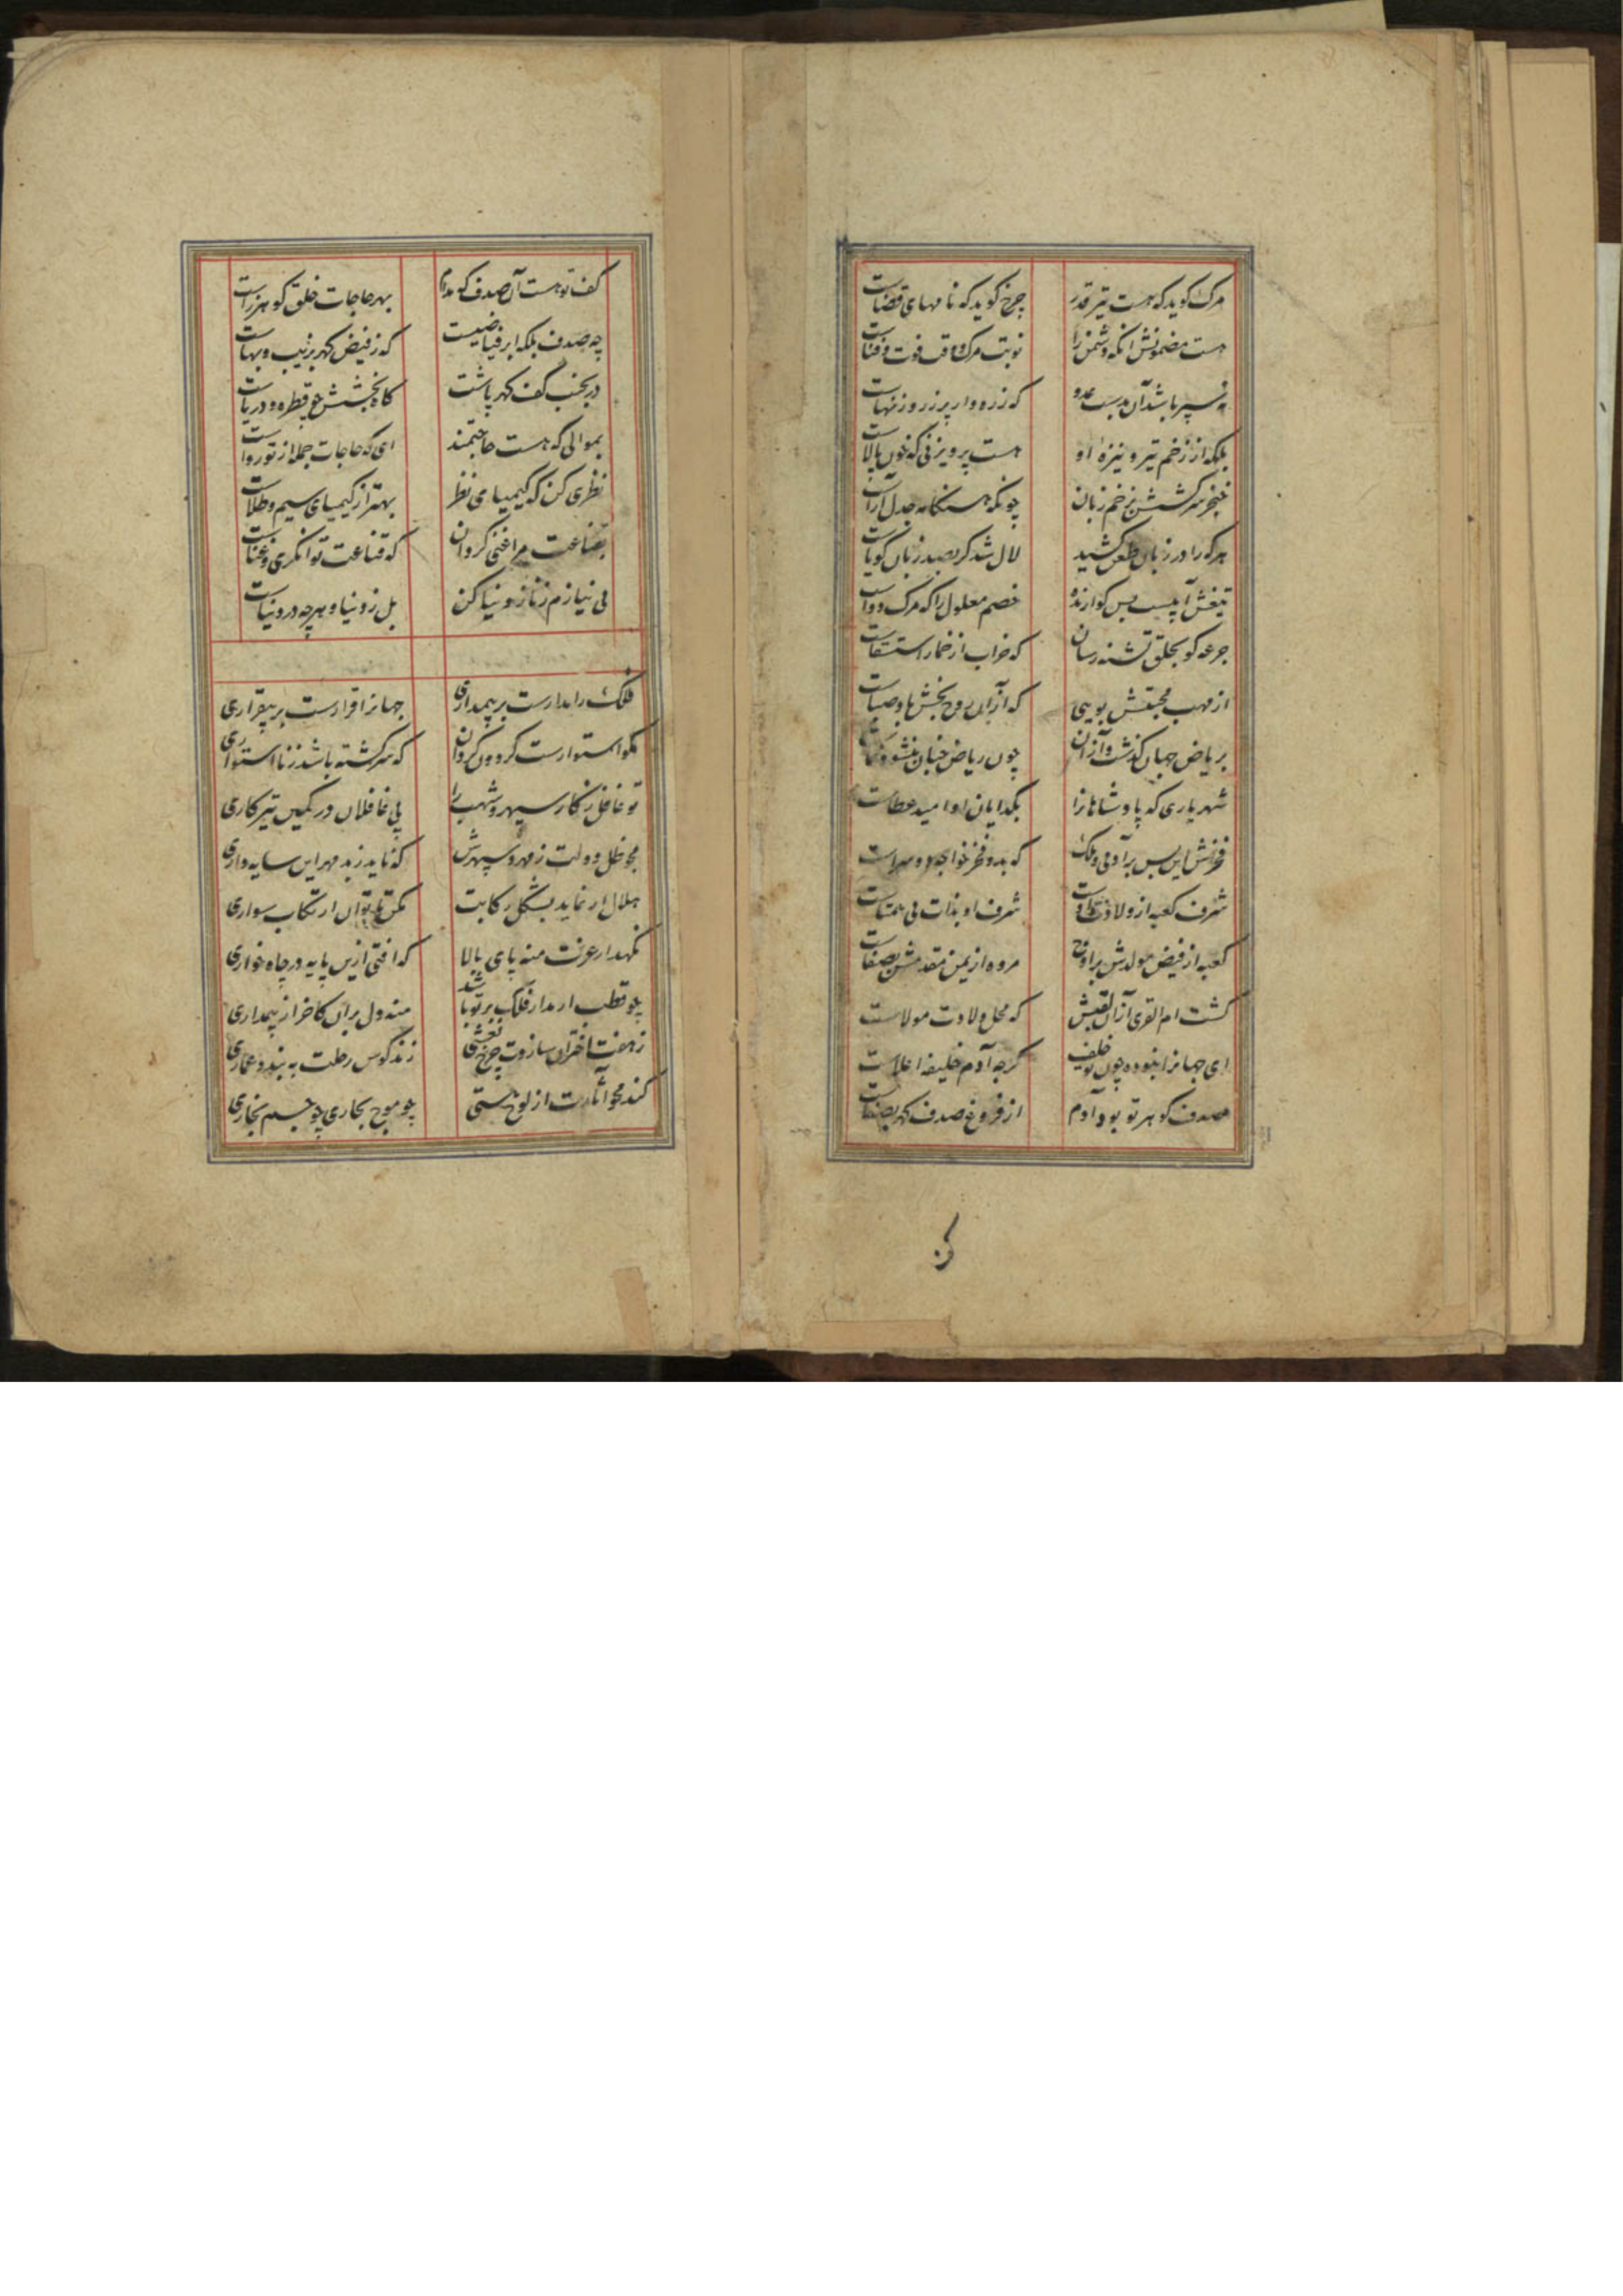 مرک کوید که هست تیر قدر چرخ کوید که نامهای قضاست
هست مضمونش انکه دشمن را نوبت مرک و وقت فوت و فناست
نه سپر باشد آن بدست عدو که زره وار پر ز روزنهاست
بلکه از زخم تیر و نیزه او هست پرویزنی که خون پالاست
خنجر سرکشش بزخم زبان چونکه هنکامه جدل آراست
هر که را در زبان طعن کشید لال شد کر بصد زبان کویاست
تیغش آبیست بس کوارنده خصم معلول را که مرک دواست
جرعه کو بحلق تشنه رسان که خراب از خمار استسقاست
از مهب محبتش بویی که از آن روح بخش باد صباست
بر ریاض جهان کذشت و از آن چون ریاض جنان بنشو و نماست
شهریاری که پادشاهانرا بکدایان او امید عطاست
فخرش این بس بر آدمی و ملک که بدو فخر خواجه دو سراست
شرف کعبه از ولادت اوست شرف او بذات بی همتاست
کعبه از فیض مولدش بر اوج مروه از یمن مقدمش بصفاست
کشت ام القری از آن لقبش که محل ولادت مولاست
ای جهانرا نبوده چون تو خلف کرچه آدم خلیفه اعلاست
صدف کوهر تو بود آدم از فروغ صدف کهر بصفاست
کف
کف تو هست آن صدف که مدام بهر حاجات خلق کوهرزاست
چه صدف بلکه ابر فیاضیست که ز فیض کهر بزیب و بهاست
در بجنب کف کهر پاشت کاه بخشش چو قطره و دریاست
بموالی که هست حاجتمند ای که حاجات جمله از تو رواست
نظری کن که کیمیای نظر بهتر از کیمیای سیم و طلاست
بقناعت مرا غنی کردان که قناعت توانکری و غناست
بی نیازم ز ناز دنیا کن بل ز دنیا و هرچه در دنیاست
فلک را مدارست بر بیمداری جهانرا قرارست بر بیقراری
مکو استوارست کردون کردان که سرکشته باشد ز نااستواری
تو غافل ز کار سپهر و شب را پی غافلان در کمین تیرکاری
مجو ظل دولت ز مهر سپهرش که ناید ز بد مهر این سایه داری
هلال ار نماید بشکل رکابت مکن تا توان ارتکاب سواری
نکهدار عزت منه پای بالا که افتی ازین پایه در چاه خواری
چو قطب ار مدار فلک بر تو باشد منه دل بر آن کاخر از بیمداری
ز هفت اختران سازدت چرخ نعشی زند کوس رحلت به بندد عماری
کند محو آثارت از لوح هستی چو موج بحاری چو جسم بخاری